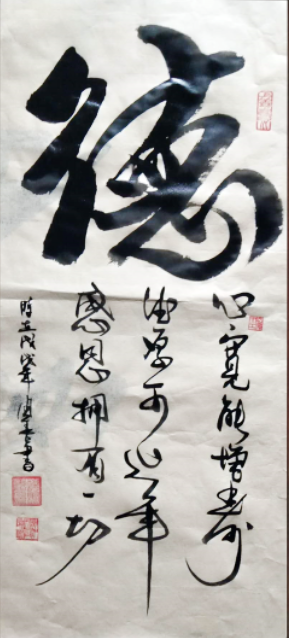 德
心宽能增寿
德厚可延年
感恩拥有一切
时在戊戌年
书